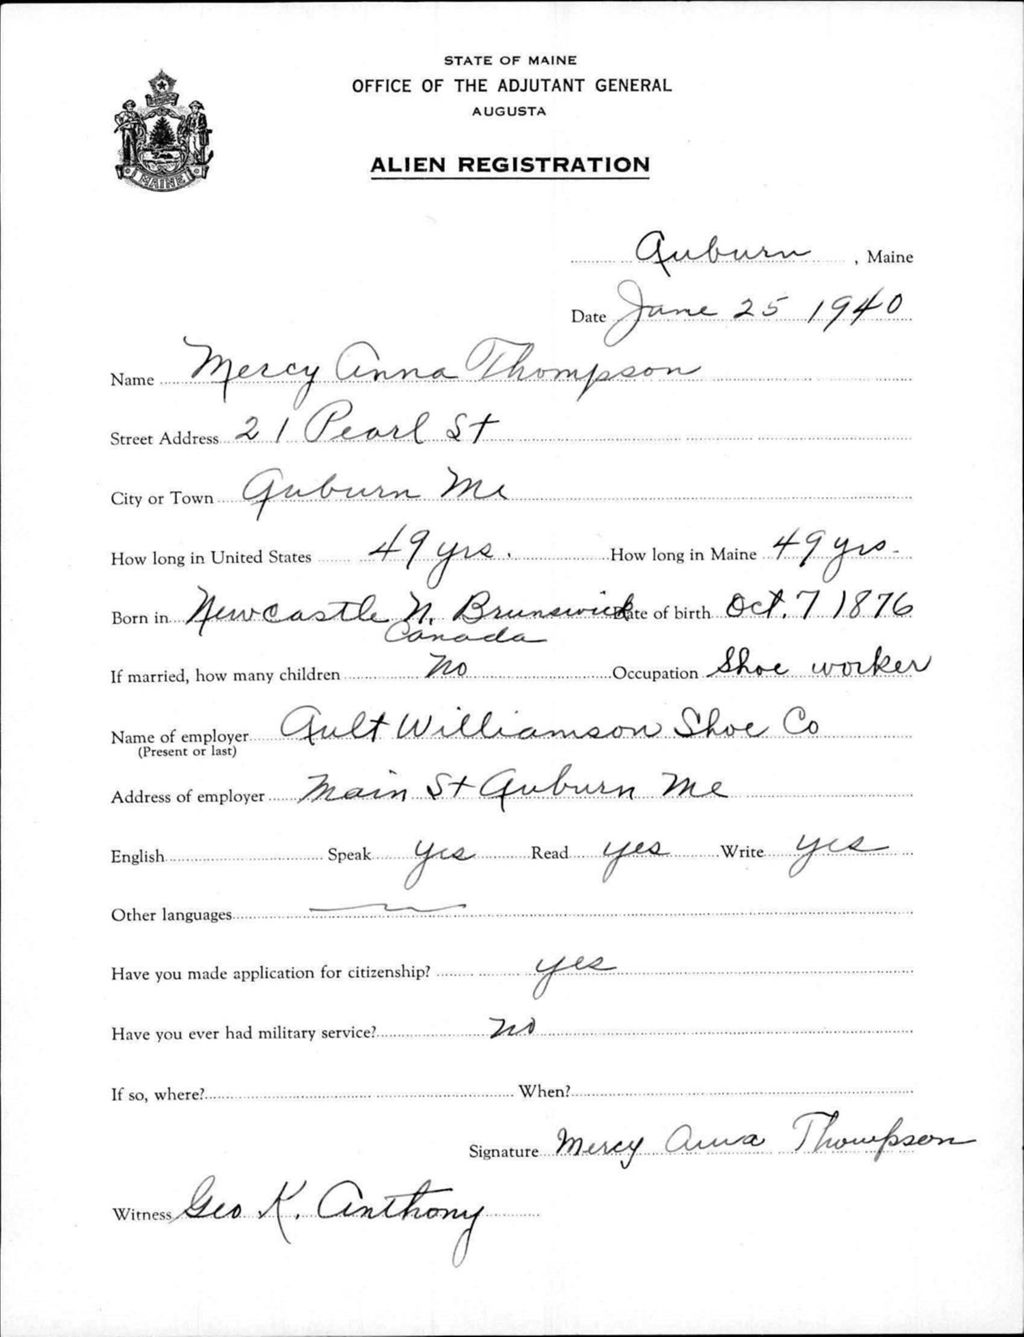 STATE OF MAINE
OFFICE OF THE ADJUTANT GENERAL
AUGUSTA
ALIEN REGISTRATION
MAINE
Auburn, Maine
Date June 25 1940
Name Mercy Anna Thompson
Street Address 21 Pearl St
City or Town Auburn Me
How long in United States 49 yrs. How long in Maine 49 yrs.
Born in Newcastle N. Brunswick Date of birth Oct. 7 1876
Canada
If married, how many children No Occupation Shoe worker
Name of employer Ault Williamson Shoe Co
(Present or last)
Address of employer Main St Auburn Me
English Speak yes Read yes Write yes
Other languages
Have you made application for citizenship? yes
Have you ever had military service? no
If so, where? When?
Signature Mercy Anna Thompson
Witness Geo K. Anthony